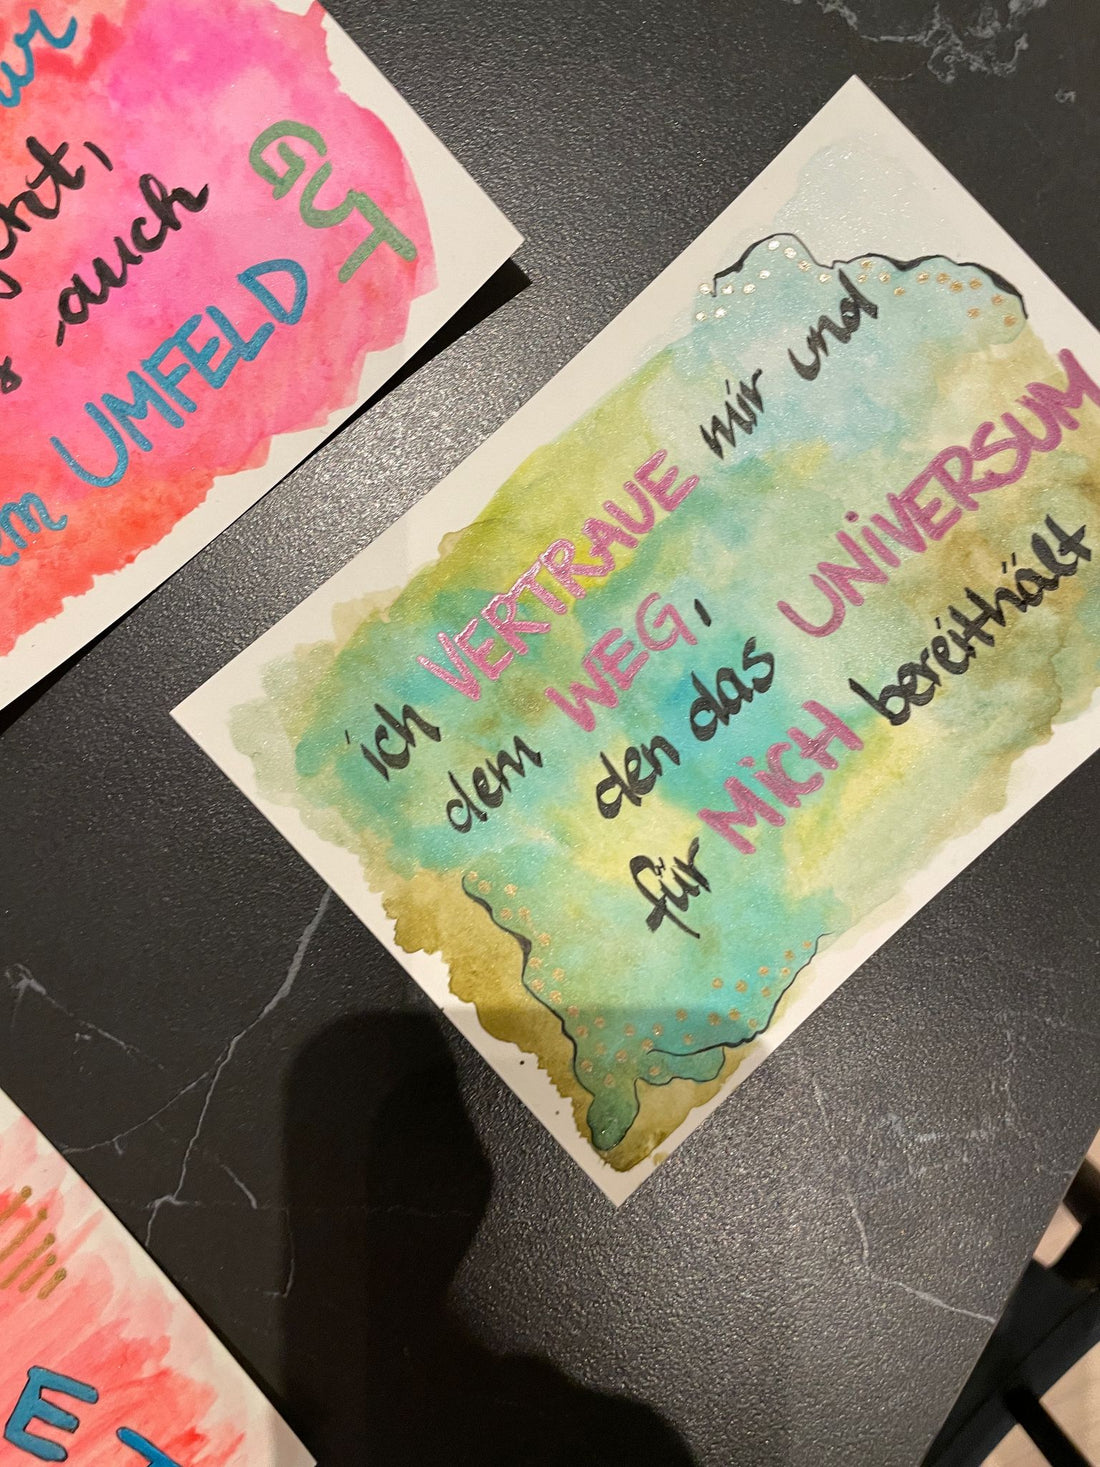 auch
UMFELD
GUT
ich VERTRAUE mir und
dem WEG,
den das UNiVERSUM
für MiCH bereithält
E